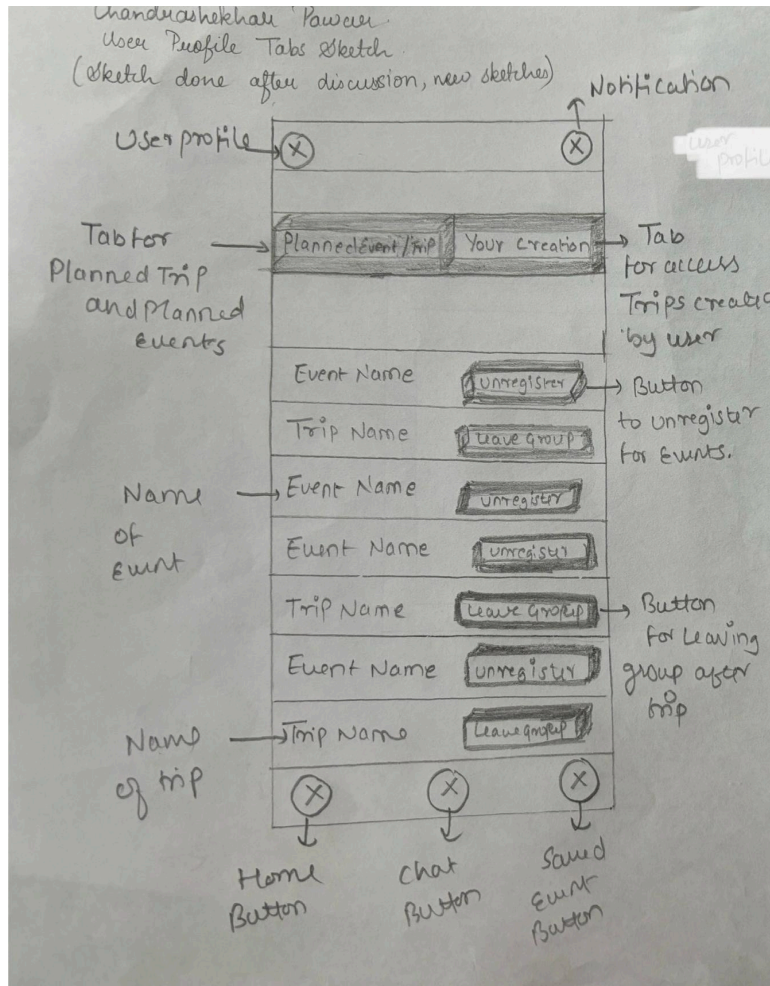 Chandrashekhar Pawar.
User Profile Tabs Sketch
(Sketch done after discussion, new sketches)
Notification
User profile
X
X
user
profile
Tab for
Planned Trip
and planned
Events
Planned Event/Trip
Your Creation
Tab
for access
Trips create
by user
Event Name
Unregister
Button
to unregister
for Events.
Trip Name
Leave Group
Name
of
Event
Event Name
Unregister
Event Name
Unregister
Trip Name
Leave Group
Button
for Leaving
group after
trip
Event Name
Unregister
Name
of trip
Trip Name
Leave group
X
X
X
Home
Button
Chat
Button
Saved
Event
Button